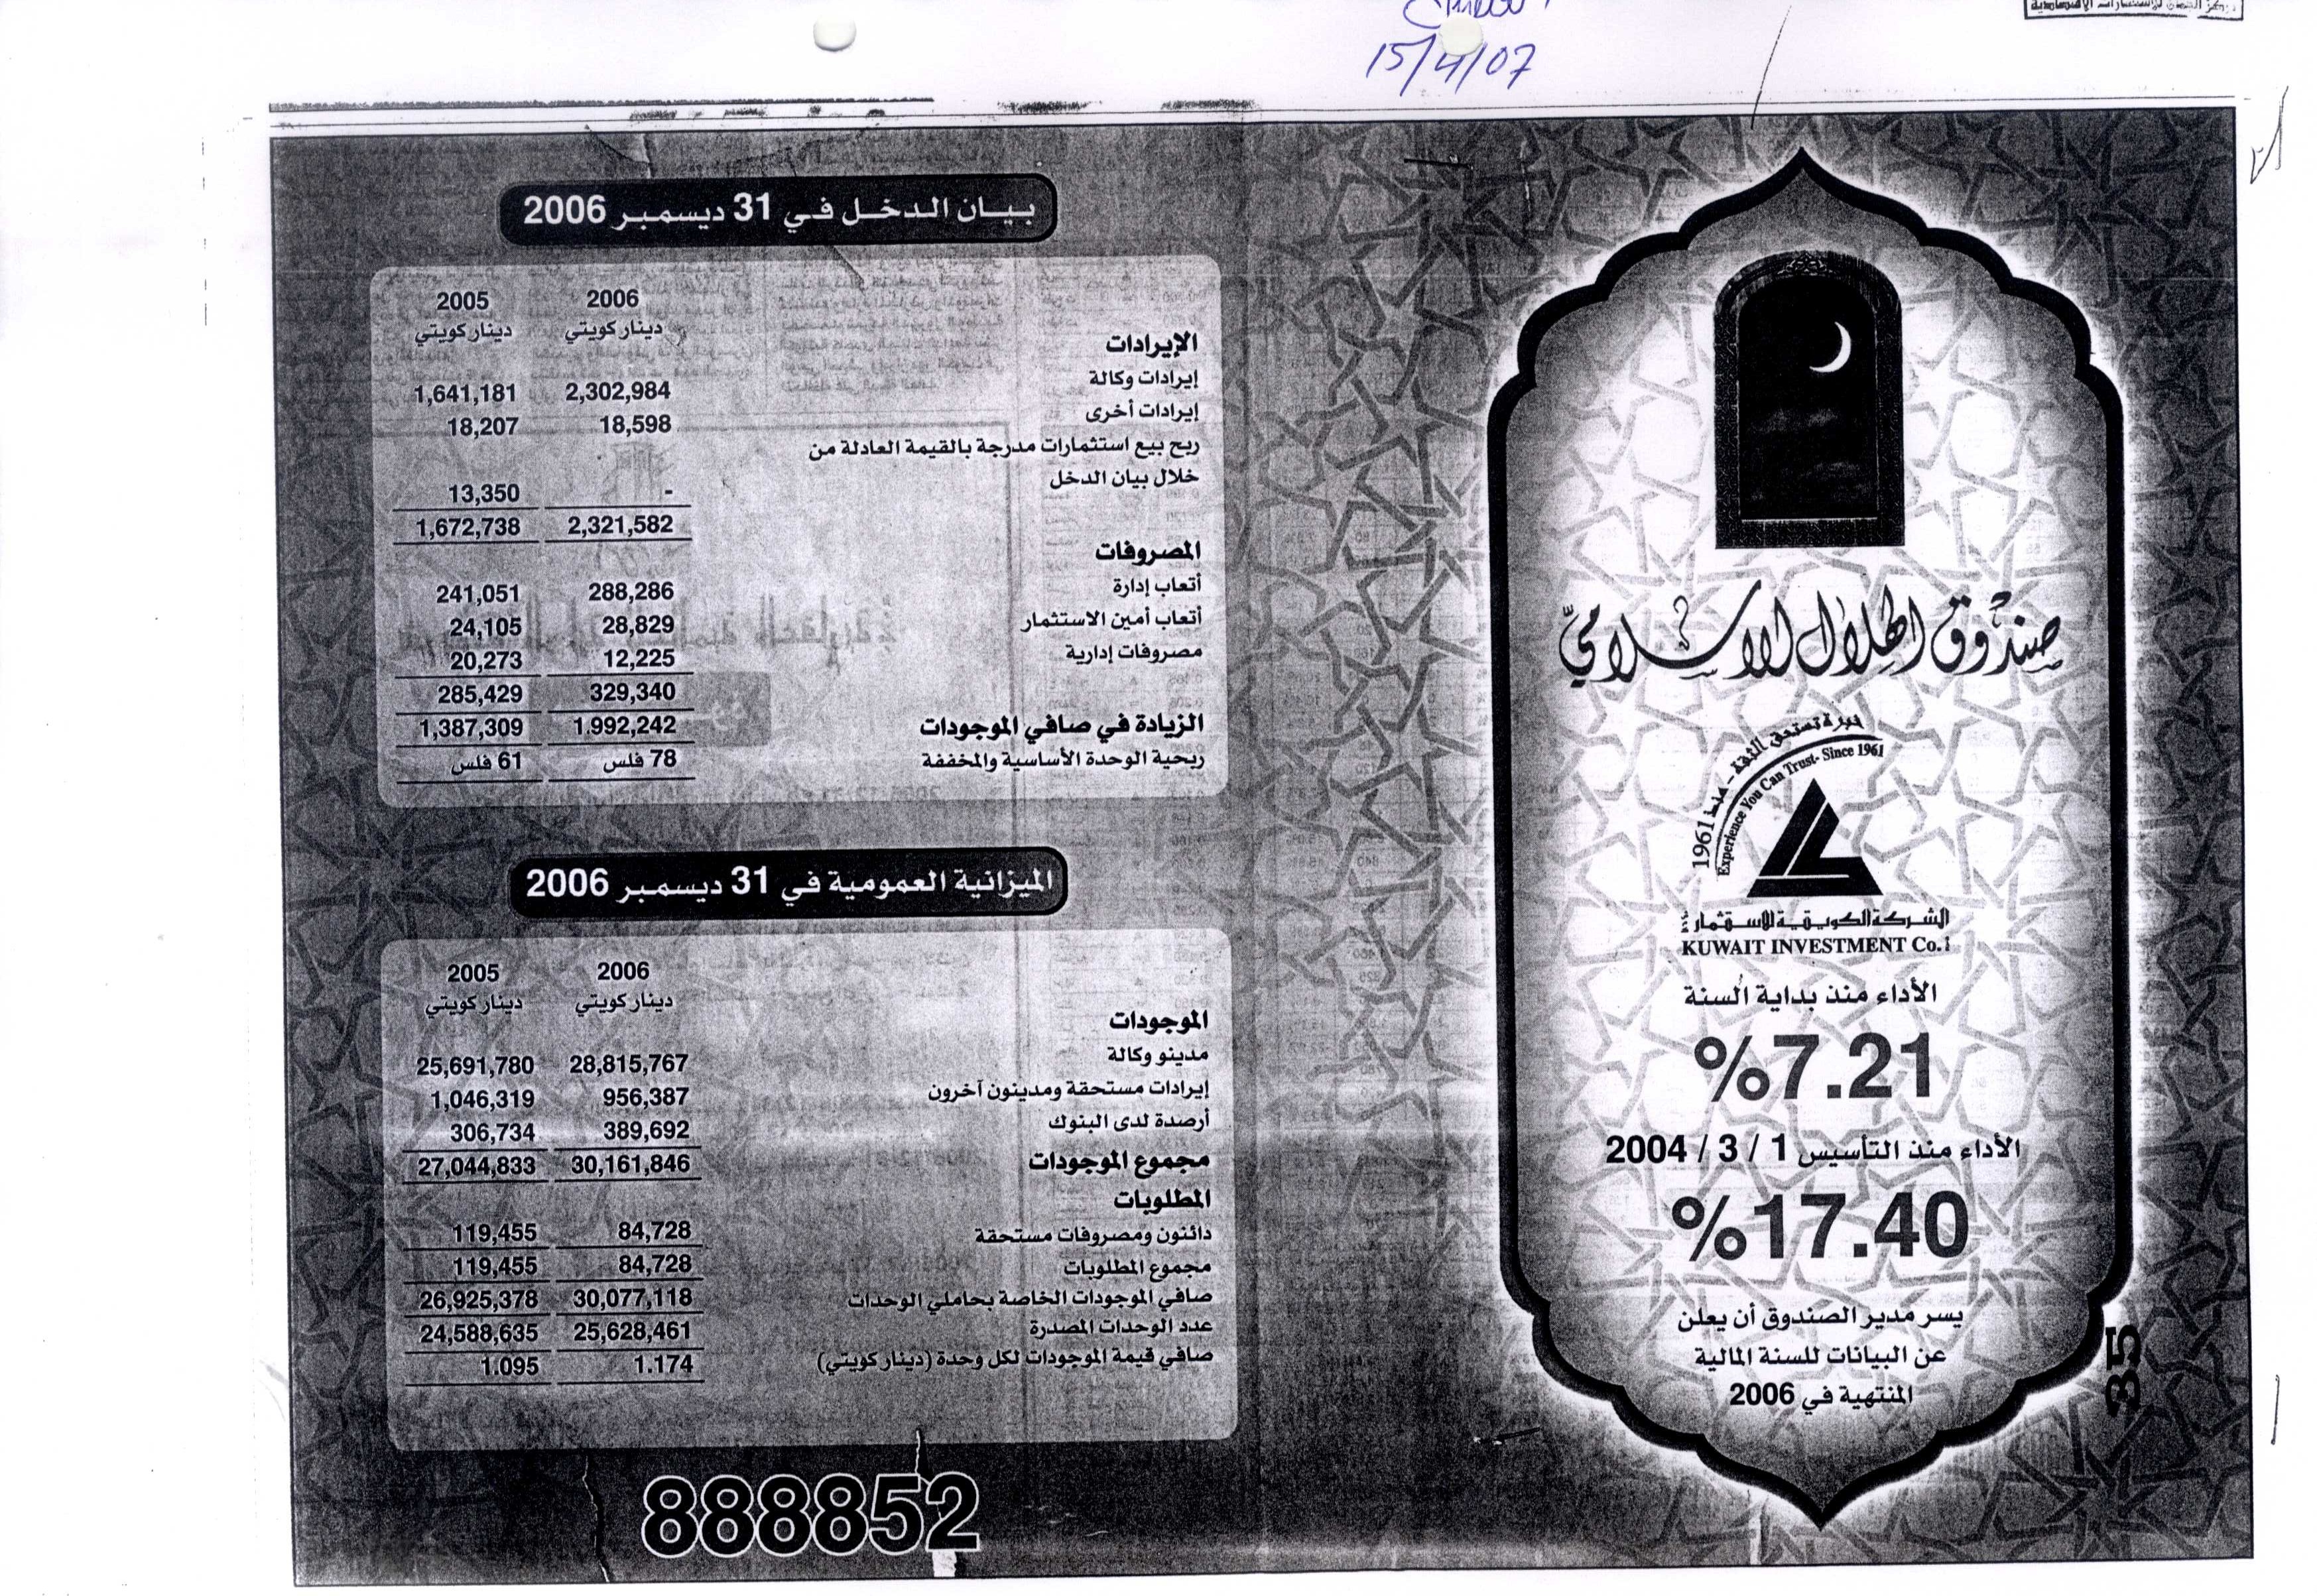 15/4/07
صندوق الهلال الإسلامي
خبرة تستحق الثقة - منذ 1961
Experience You Can Trust- Since 1961
الشركة الكويتية للاستثمار
KUWAIT INVESTMENT Co.
الأداء منذ بداية السنة
%7.21
الأداء منذ التأسيس 1 / 3 / 2004
%17.40
يسر مدير الصندوق أن يعلن
عن البيانات للسنة المالية
المنتهية في 2006
35
بيان الدخل في 31 ديسمبر 2006
2006 2005
دينار كويتي دينار كويتي
الإيرادات
إيرادات وكالة 2,302,984 1,641,181
إيرادات أخرى 18,598 18,207
ربح بيع استثمارات مدرجة بالقيمة العادلة من
خلال بيان الدخل - 13,350
2,321,582 1,672,738
المصروفات
أتعاب إدارة 288,286 241,051
أتعاب أمين الاستثمار 28,829 24,105
مصروفات إدارية 12,225 20,273
329,340 285,429
الزيادة في صافي الموجودات 1.992,242 1,387,309
ربحية الوحدة الأساسية والمخففة 78 فلس 61 فلس
الميزانية العمومية في 31 ديسمبر 2006
2006 2005
دينار كويتي دينار كويتي
الموجودات
مدينو وكالة 28,815,767 25,691,780
إيرادات مستحقة ومدينون آخرون 956,387 1,046,319
أرصدة لدى البنوك 389,692 306,734
مجموع الموجودات 30,161,846 27,044,833
المطلوبات
دائنون ومصروفات مستحقة 84,728 119,455
مجموع المطلوبات 84,728 119,455
صافي الموجودات الخاصة بحاملي الوحدات 30,077,118 26,925,378
عدد الوحدات المصدرة 25,628,461 24,588,635
صافي قيمة الموجودات لكل وحدة (دينار كويتي) 1.174 1.095
888852